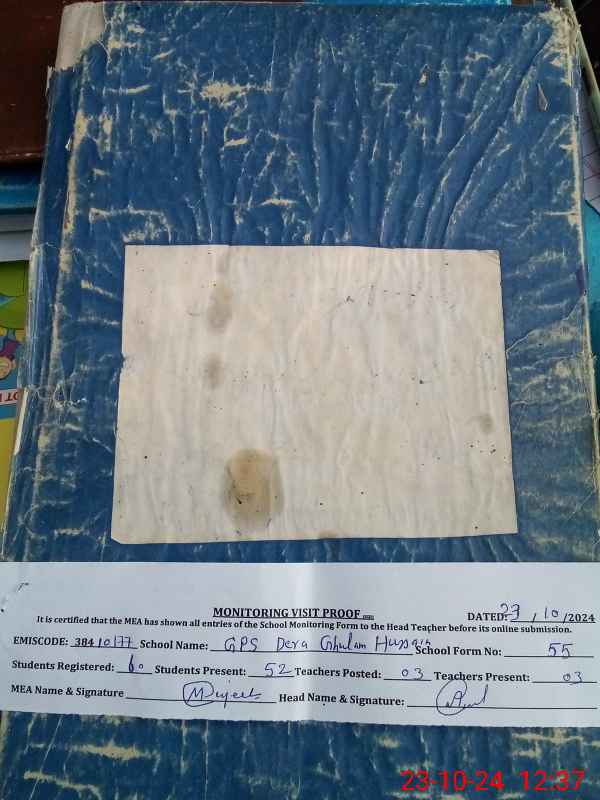 MONITORING VISIT PROOF
DATED: 23 / 10 /2024
It is certified that the MEA has shown all entries of the School Monitoring Form to the Head Teacher before its online submission.
EMISCODE: 38410177 School Name: GPS Dera Ghulam Hussain School Form No: 55
Students Registered: 60 Students Present: 52 Teachers Posted: 03 Teachers Present: 03
MEA Name & Signature Head Name & Signature:
23-10-24 12:37